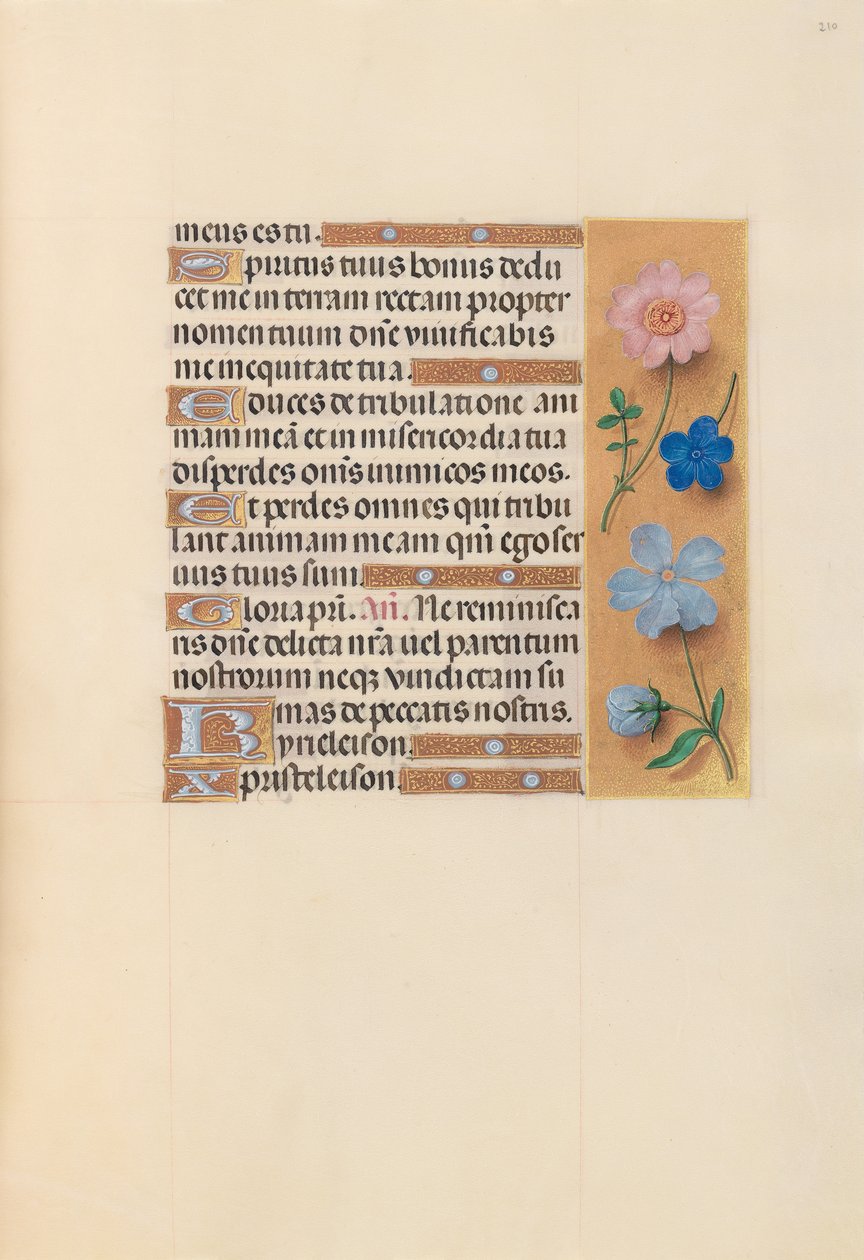 210
meus es tu.
Spiritus tuus bonus dedu
cet me in terram rectam propter
nomen tuum dñe vivificabis
me in equitate tua.
Educes de tribulatione ani
mam meā et in misericordia tua
disperdes om̄s inimicos meos.
Et perdes omnes qui tribu
lant animam meam qm̄ ego ser
uus tuus sum.
Gloria pr̄i. An̄. Ne reminisca
ris dñe delicta nr̄a uel parentum
nostrorum neqꝫ vindictam su
mas de peccatis nostris.
Kyrieleison.
Xpristeleison.